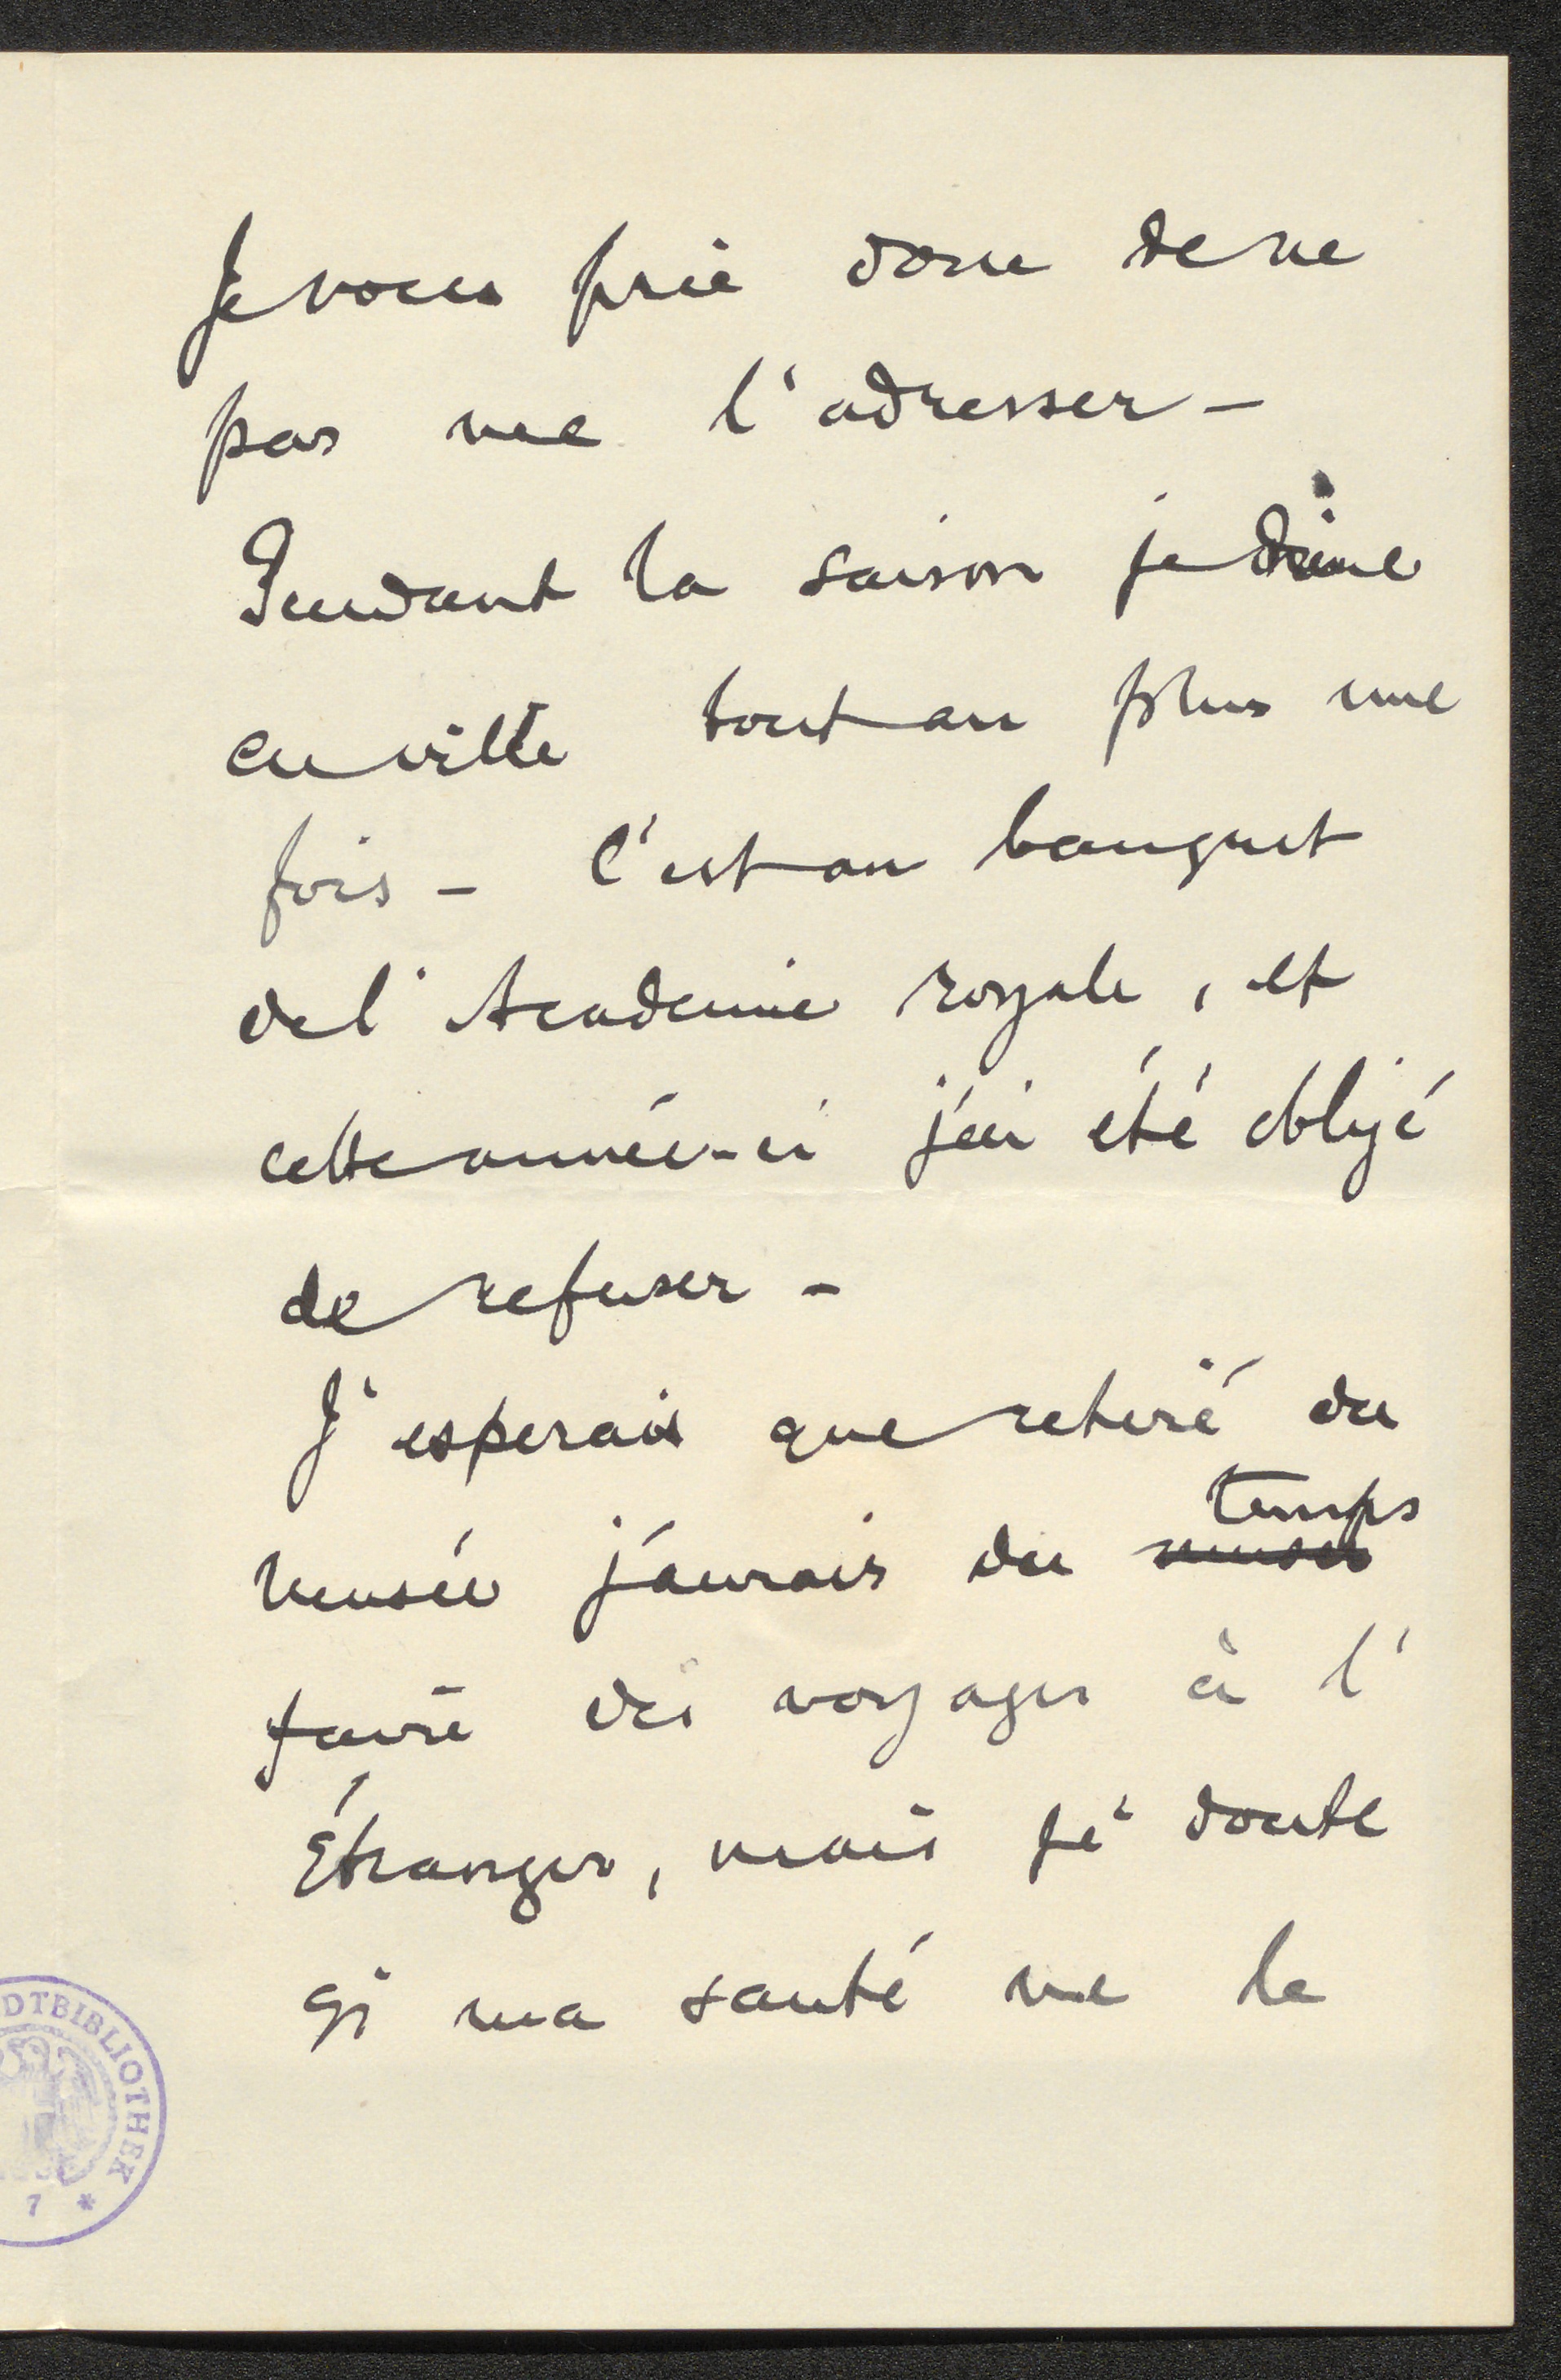 Je vous prie donc de ne
pas me l'adresser -
Pendant la saison je dine
en ville tout au plus une
fois - c'est au banquet
de l'Academie royale, et
cette année-ci j'ai été obligé
de refuser -
J'esperais que retiré du
Musée j'aurais du musée temps
faire des voyages à l'
Étranger, mais je doute
si ma santé me le
DTBIBLIOTHEK
7 *